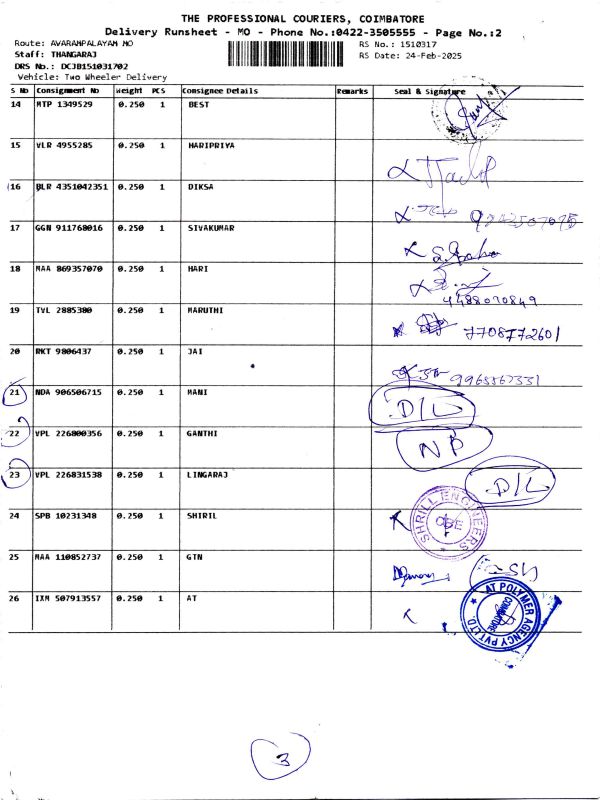 THE PROFESSIONAL COURIERS, COIMBATORE
Delivery Runsheet - MO - Phone No.:0422-3505555 - Page No.:2
Route: AVARAMPALAYAM MO
RS No.: 1510317
Staff: THANGARAJ
RS Date: 24-Feb-2025
DRS No.: DCJB151031702
Vehicle: Two Wheeler Delivery
S No Consignment No Weight PCS Consignee Details Remarks Seal & Signature
14 MTP 1349529 0.250 1 BEST
15 VLR 4955285 0.250 1 HARIPRIYA
16 BLR 4351042351 0.250 1 DIKSA
17 GGN 911768016 0.250 1 SIVAKUMAR
18 MAA 869357070 0.250 1 HARI
19 TVL 2885380 0.250 1 MARUTHI 7708772601
20 RKT 9806437 0.250 1 JAI
21 NDA 906506715 0.250 1 MANI D/L
22 VPL 226800356 0.250 1 GANTHI NP
23 VPL 226831538 0.250 1 LINGARAJ D/L
24 SPB 10231348 0.250 1 SHIRIL SHRILL ENGINEERS CBE
25 MAA 110852737 0.250 1 GTN
26 IXM 507913557 0.250 1 AT AT POLYMER AGENCY PVT LTD. COIMBATORE
3